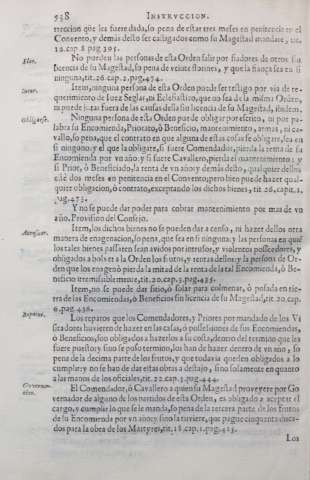 538 INSTRVCCION.
treccion que les fuere dada, so pena de estar tres meses en penitencia en el
Conuento, y demàs desto ser castigados como su Magestad mandare, tit.
10. cap 8 pag 395.
Fiar.
No pueden las personas de esta Orden salir por fiadores de otros sin
licencia de su Magestad, so pena de veinte florines, y que la fiança sea en si
ninguna, tit. 26. cap. 2. pag. 474.
Item, ninguna persona de esta Orden puede ser testigo por via de re-
querimiento de Iuez Seglar, ni Eclesiastico, que no sea de la misma Orden,
ni puede jurar fuera de las causas della sin licencia de su Magestad,
Obligarse.
Ninguna persona de esta Orden puede obligar por escrito, ni por pa-
labra su Encomienda, Priorato, ò Beneficio, mantenimiento, armas, ni ca-
vallo, so pena, que el contrato en que alguna de estas cosas se obligare, sea en
si ninguno, y el que la obligare, si fuere Comendador, pierda la renta de su
Encomienda por vn año, y si fuere Cavallero, pierda el mantenimiento; y
si Prior, ò Beneficiado, la renta de vn año; y demàs desto, qualquier dellos
estè dos meses en penitencia en el Convento, pero bien puede hazer qual-
quier obligacion, ò contrato, exceptando los dichos bienes, tit 26. capit. 1.
pag. 473.
Y no se puede dar poder para cobrar mantenimiento por mas de vn
año. Provision del Consejo.
Item, los dichos bienes no se pueden dar a censo, ni hazer dellos otra
manera de enagenacion, so pena, que sea en si ninguna: y las personas en quien
los tales bienes passaren sean avidos por intrusos, y violentos posseedores, y
obligados a bolver a la Orden los frutos, y rentas dellos: y la persona de Or-
den que los enagenò pierda la mitad de la renta de la tal Encomienda, ò Be-
neficio irremissiblemente, tit. 20. cap. 5. pag. 435.
Item, no se puede dar sitio, ò solar para colmenar, ò posada en tie-
rra de las Encomiendas, ò Beneficios sin licencia de su Magestad, tit. 20. cap.
6. pag. 436.
Reparos.
Los reparos que los Comendadores, y Priores por mandado de los Vi
sitadores huvieren de hazer en las casas, ò possessiones de sus Encomiendas,
ò Beneficios, son obligados a hazerlos a su costa, dentro del termino que les
fuere puesto: y sino se puso termino, los han de hazer dentro de vn año, so
pena de la decima parte de los frutos, y que todavia queden obligados a lo
cumplir: y no se han de dar estas obras a destajo, sino solamente en quanto
a las manos de los oficiales, tit. 22. cap. 3. pag. 444.
El Comendador, ò Cavallero a quien su Magestad proveyere por Go
vernador de alguno de los partidos de esta Orden, es obligado a aceptar el
cargo, y cumplir lo que se le manda, so pena de la tercera parte de los frutos
de su Encomienda por vn año, y sino la tuviere, que pague cinquenta duca-
dos para la obra de los Martyres, tit. 18. cap. 1. pag. 415.
Los